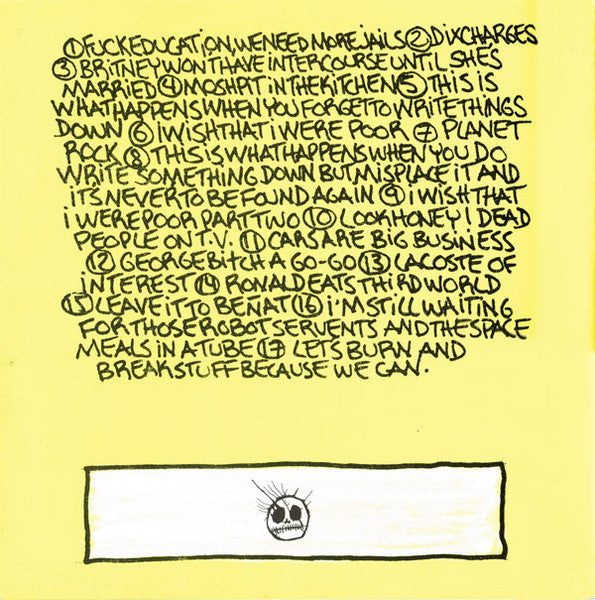 ① FUCK EDUCATION, WE NEED MORE JAILS ② DIXCHARGES
③ BRITNEY WONT HAVE INTERCOURSE UNTIL SHE'S
MARRIED ④ MOSHPIT IN THE KITCHEN ⑤ THIS IS
WHAT HAPPENS WHEN YOU FORGET TO WRITE THINGS
DOWN ⑥ I WISH THAT i WERE POOR ⑦ PLANET
ROCK ⑧ THIS IS WHAT HAPPENS WHEN YOU DO
WRITE SOMETHING DOWN BUT MISPLACE iT AND
ITS NEVER TO BE FOUND AGAIN ⑨ i WISH THAT
i WERE POOR PART TWO ⑩ LOOK HONEY! DEAD
PEOPLE ON T.V. ⑪ CARS ARE BIG BUSINESS
⑫ GEORGE BITCH A GO-GO ⑬ LACOSTE OF
INTEREST ⑭ RONALD EATS THIRD WORLD
⑮ LEAVE IT TO BEÑAT ⑯ i'M STILL WAITING
FOR THOSE ROBOT SERVENTS AND THE SPACE
MEALS IN A TUBE ⑰ LETS BURN AND
BREAK STUFF BECAUSE WE CAN.